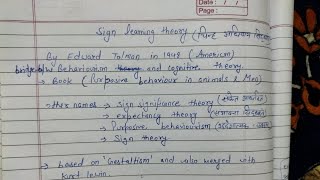 Date : / /
Page :
Sign learning theory (चिन्ह अधिगम सिद्धांत)
By Edward Tolman in 1948 (American)
bridge b/w Behaviourism and cognitive theory.
→ Book (Purposive behaviour in animals & Men)
Other names → Sign significance theory
→ expectancy theory
→ Purposive behaviourism
→ Sign theory
→ based on 'Gestaltism' and also merged with
Kurt lewin.